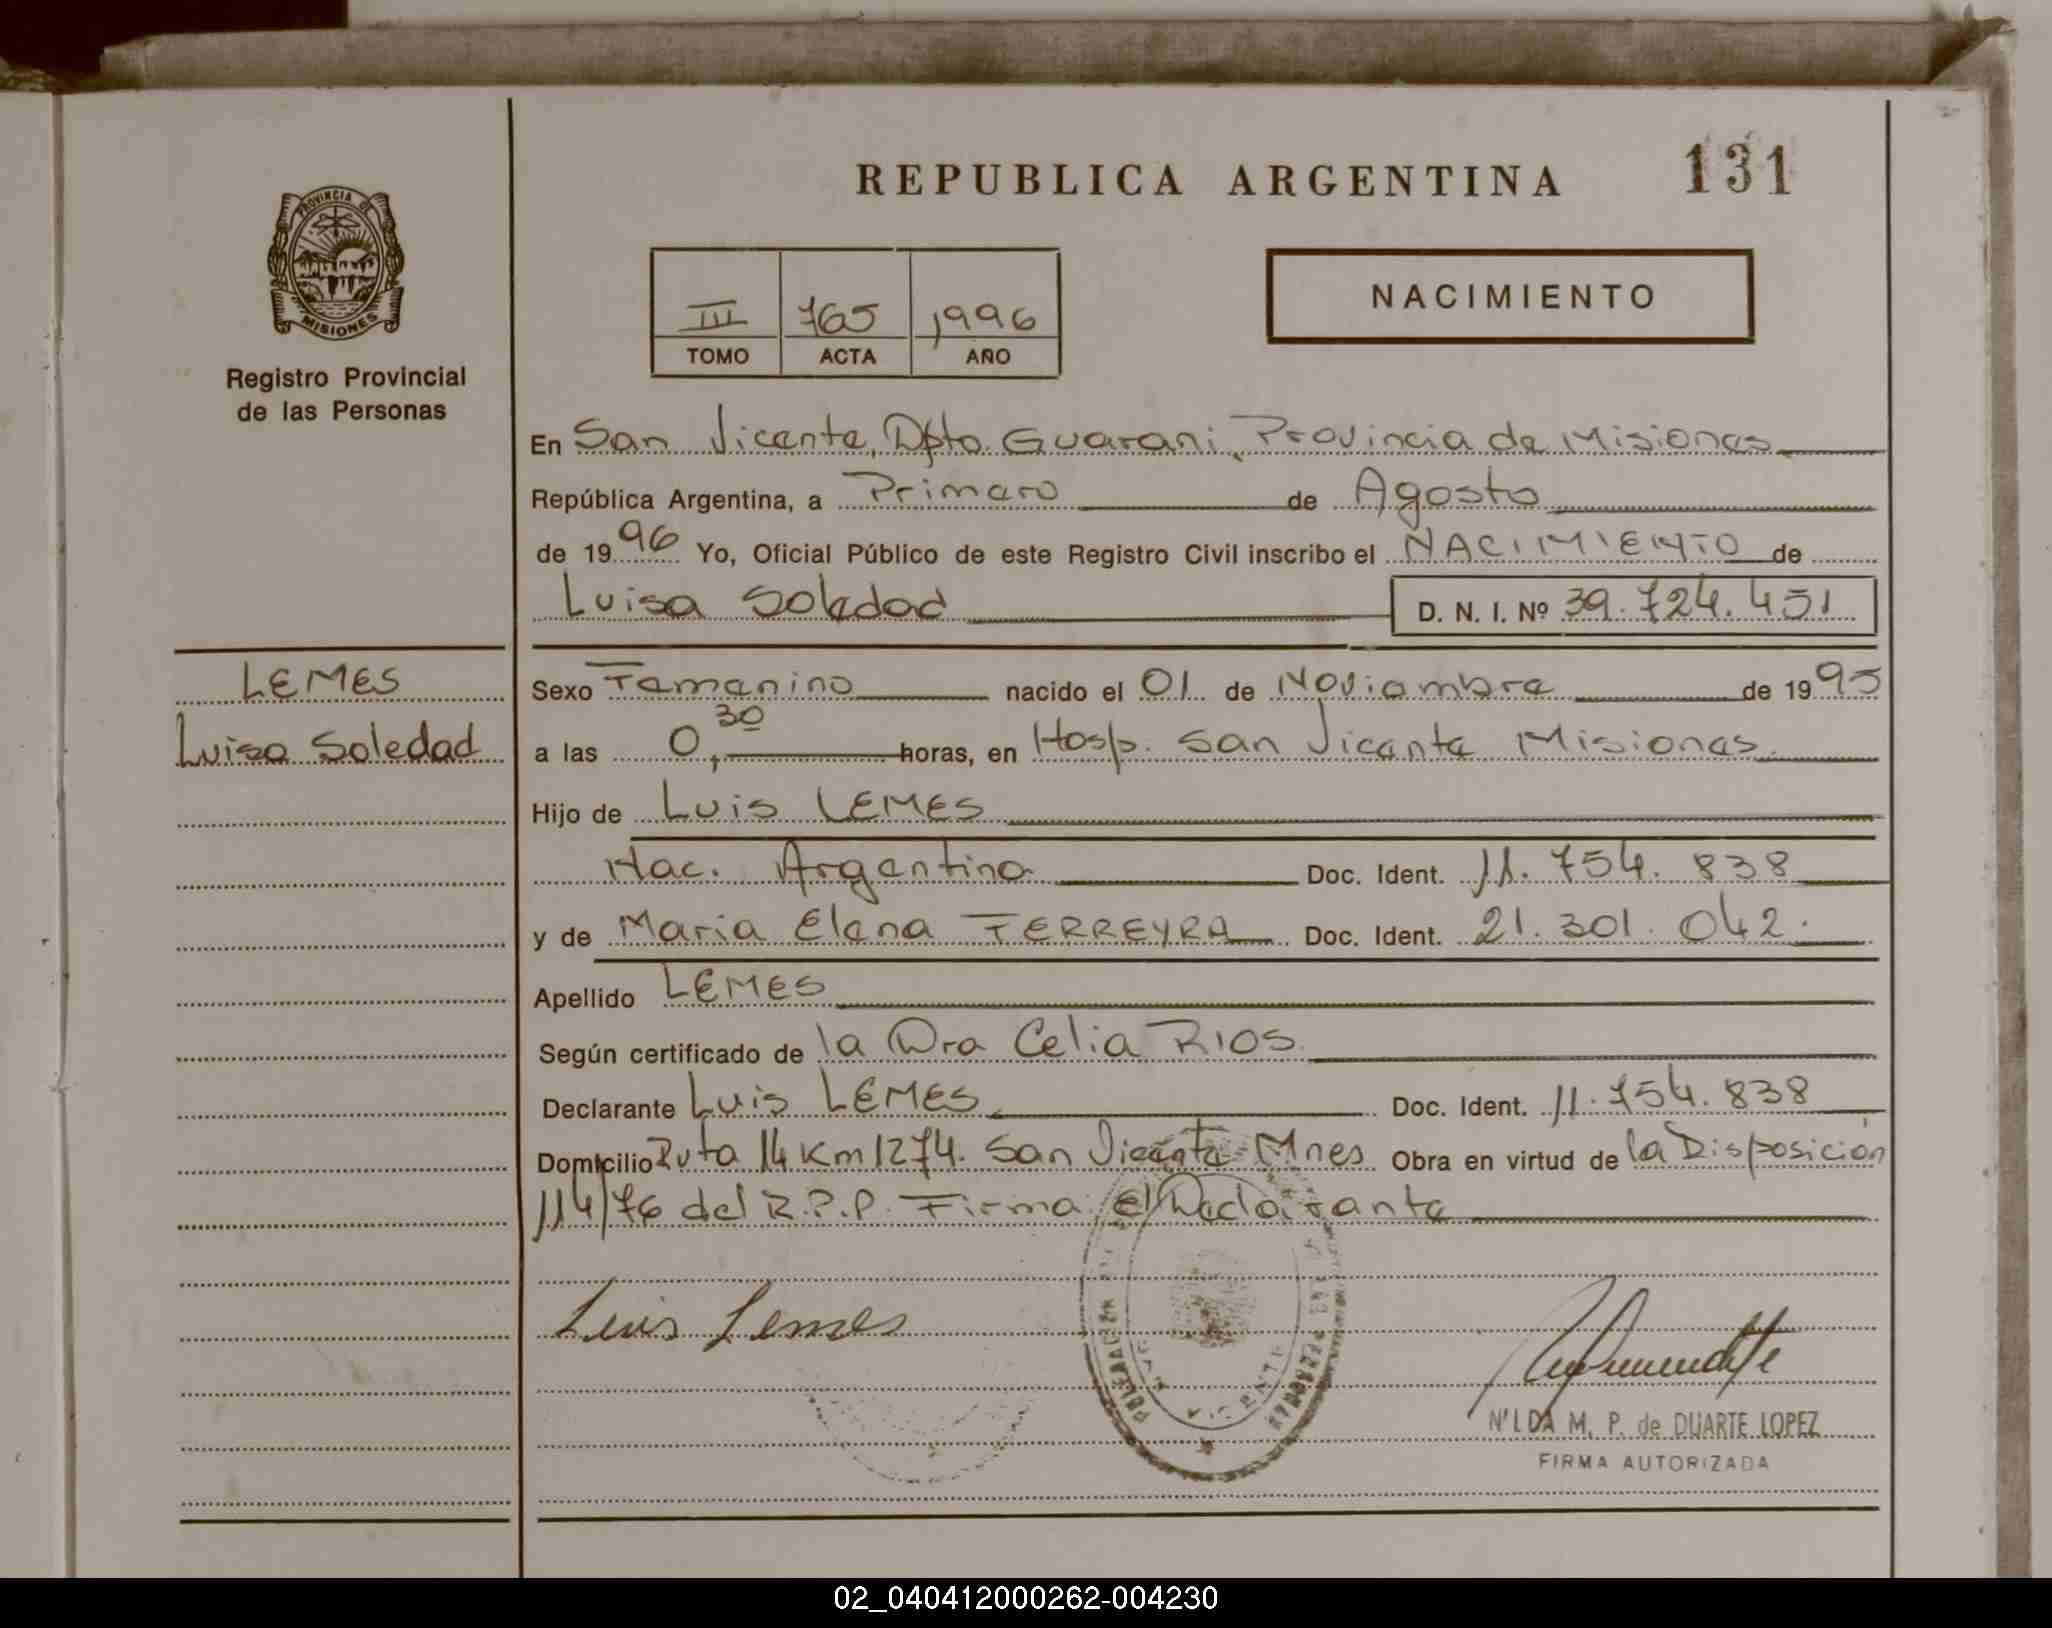 REPUBLICA ARGENTINA
131
PROVINCIA DE
MISIONES
Registro Provincial
de las Personas
III 765 1996
TOMO ACTA AÑO
NACIMIENTO
En San Vicente, Dpto. Guarani, Provincia de Misiones
República Argentina, a Primero de Agosto
de 1996 Yo, Oficial Público de este Registro Civil inscribo el NACIMIENTO de
Luisa Soledad
D. N. I. Nº 39.724.451
LEMES
Luisa Soledad
Sexo Femenino nacido el 01 de Noviembre de 1995
a las 0,30 horas, en Hosp. San Vicente Misiones
Hijo de Luis LEMES
Nac. Argentino Doc. Ident. 11.754.838
y de Maria Elena FERREYRA Doc. Ident. 21.301.042.
Apellido LEMES
Según certificado de la Dra Celia RIOS.
Declarante Luis LEMES Doc. Ident. 11.754.838
Domicilio Ruta 14 Km 1274. San Vicente Mnes Obra en virtud de la Disposición
114/76 del R.P.P. Firma: el Declarante
Luis Lemes
VICENTE
NILDA M. P. de DUARTE LOPEZ
FIRMA AUTORIZADA
02_040412000262-004230